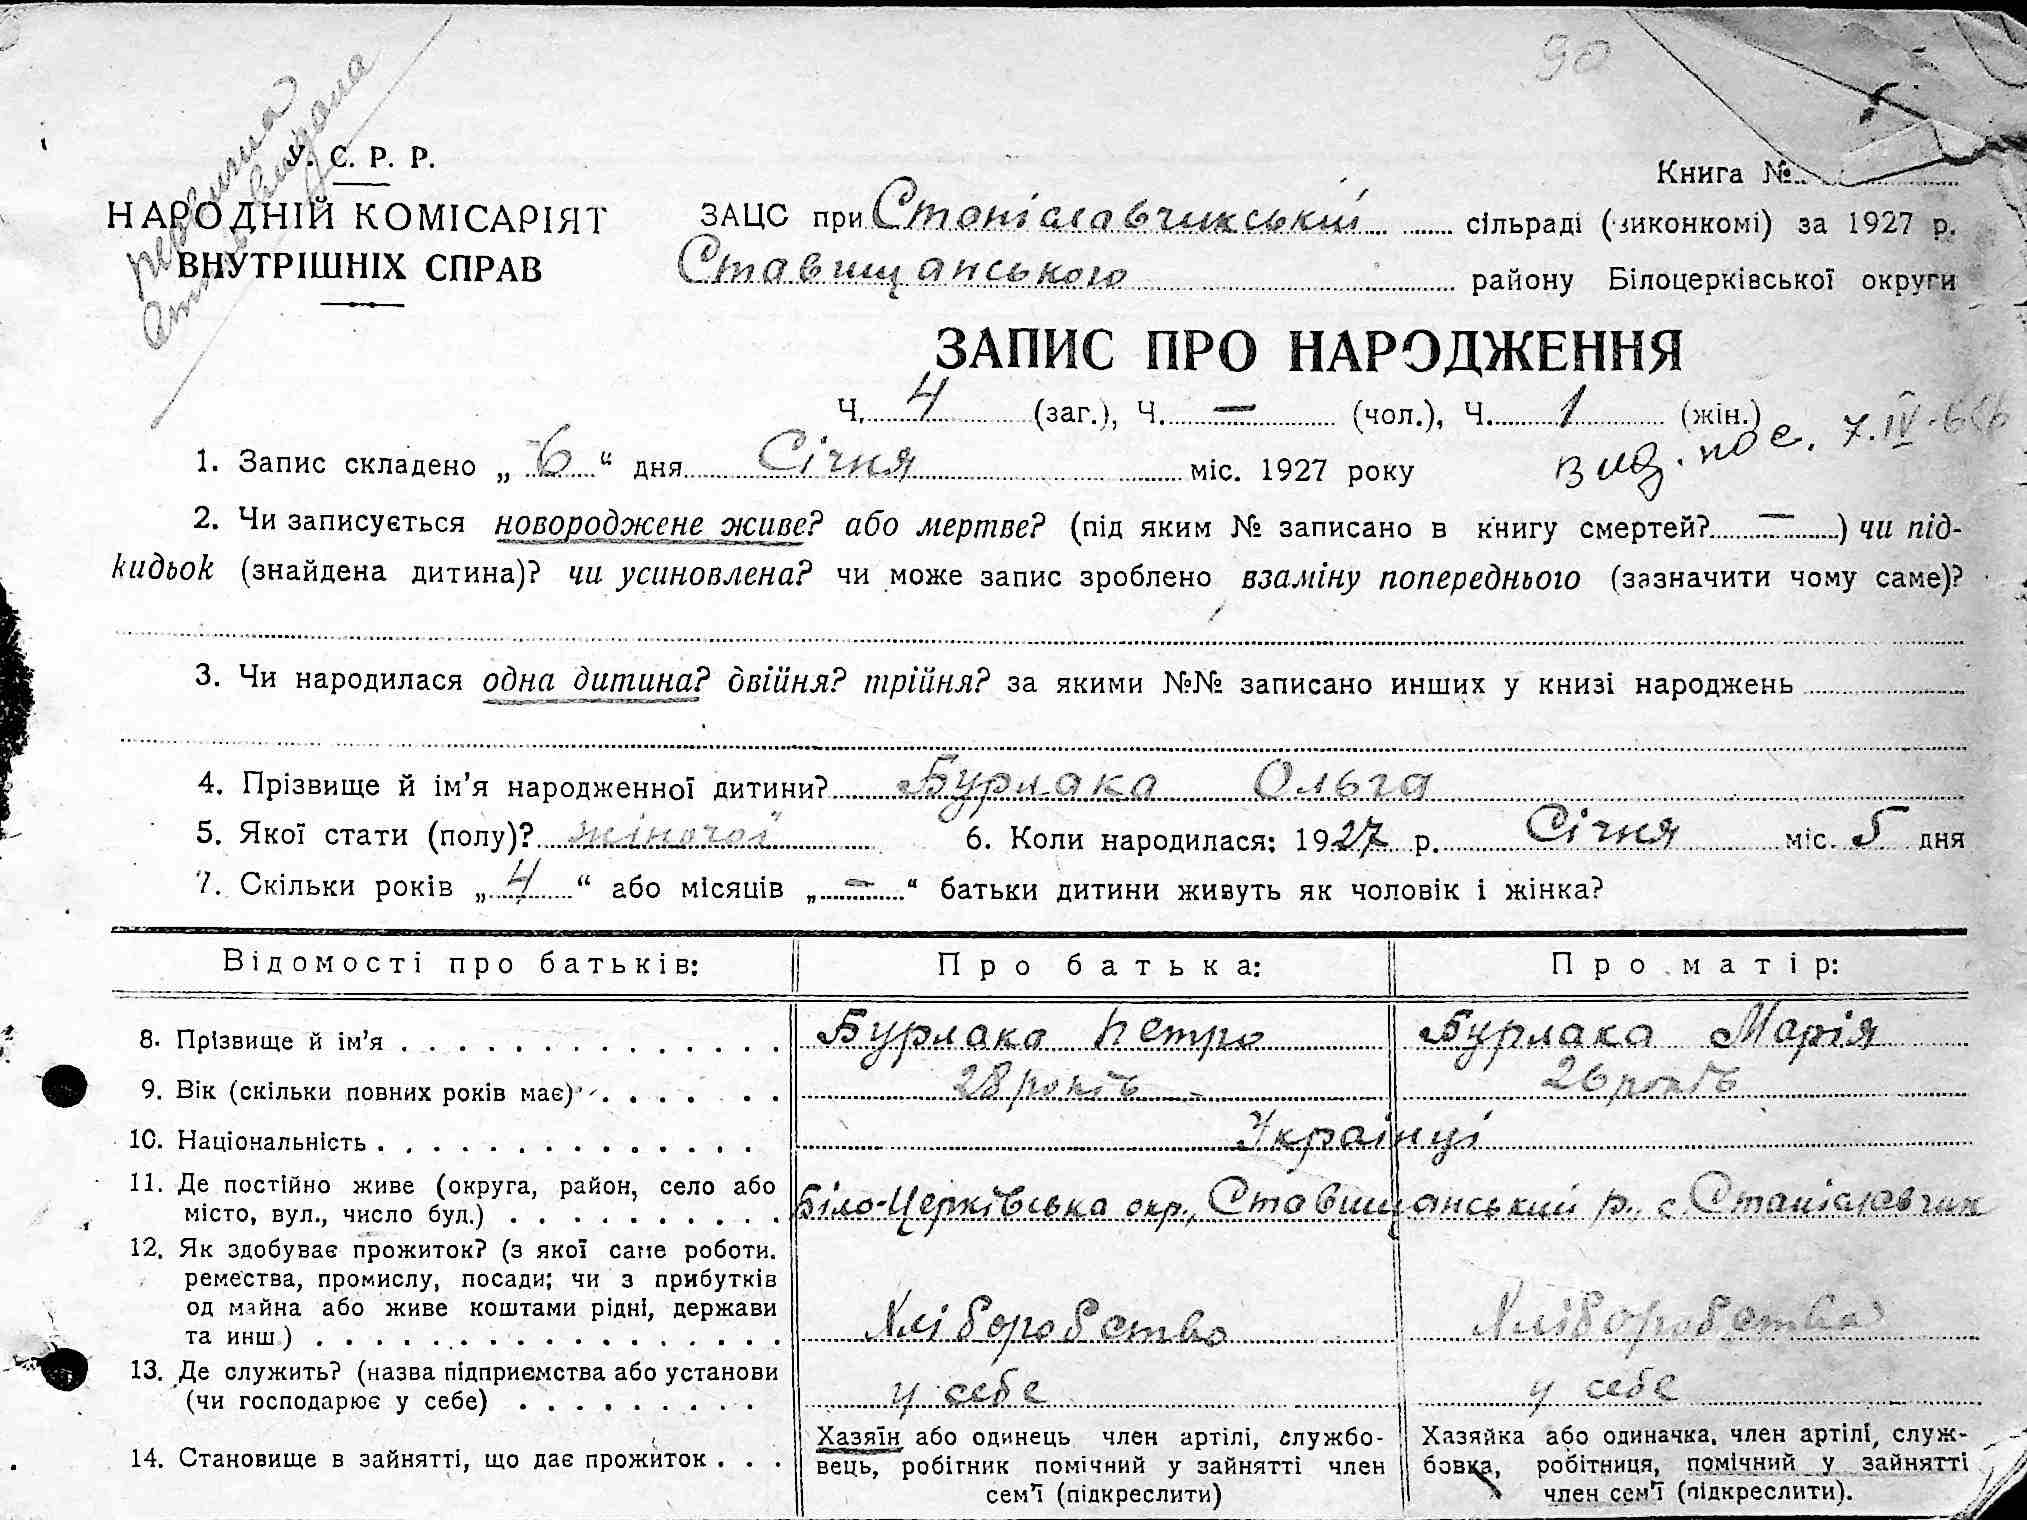 90
У. С. Р. Р.
НАРОДНІЙ КОМІСАРІЯТ
ВНУТРІШНІХ СПРАВ
Книга №
ЗАЦС при Станіславчикській сільраді (виконкомі) за 1927 р.
Ставищанського району Білоцерківської округи
ЗАПИС ПРО НАРОДЖЕННЯ
Ч. 4 (заг.), Ч. — (чол.), Ч. 1 (жін.)
1. Запис складено „ 6 “ дня Січня міс. 1927 року
2. Чи записується новороджене живе? або мертве? (під яким № записано в книгу смертей? — ) чи під-
кидьок (знайдена дитина)? чи усиновлена? чи може запис зроблено взаміну попереднього (зазначити чому саме)?
3. Чи народилася одна дитина? двійня? трійня? за якими №№ записано инших у книзі народжень
4. Прізвище й ім’я народженної дитини? Бурлака Ольга
5. Якої стати (полу)? жіночої 6. Коли народилася: 1927 р. Січня міс. 5 дня
7. Скільки років „ 4 “ або місяців „ — “ батьки дитини живуть як чоловік і жінка?
Відомості про батьків: Про батька: Про матір:
8. Прізвище й ім’я Бурлака Петро Бурлака Марія
9. Вік (скільки повних років має) 28 років 26 років
10. Національність Українці
11. Де постійно живе (округа, район, село або
місто, вул., число буд.) Біло-Церківська окр., Ставищанський р., с Станіславчик
12. Як здобуває прожиток? (з якої саме роботи.
ремества, промислу, посади; чи з прибутків
од майна або живе коштами рідні, держави
та инш.) Хліборобство Хліборобство
13. Де служить? (назва підприємства або установи
(чи господарює у себе) у себе у себе
14. Становище в зайнятті, що дає прожиток
Хазяїн або одинець член артілі, службо-
вець, робітник помічний у зайнятті член
сем’ї (підкреслити)
Хазяйка або одиначка, член артілі, служ-
бовка, робітниця, помічний у зайнятті
член сем’ї (підкреслити).